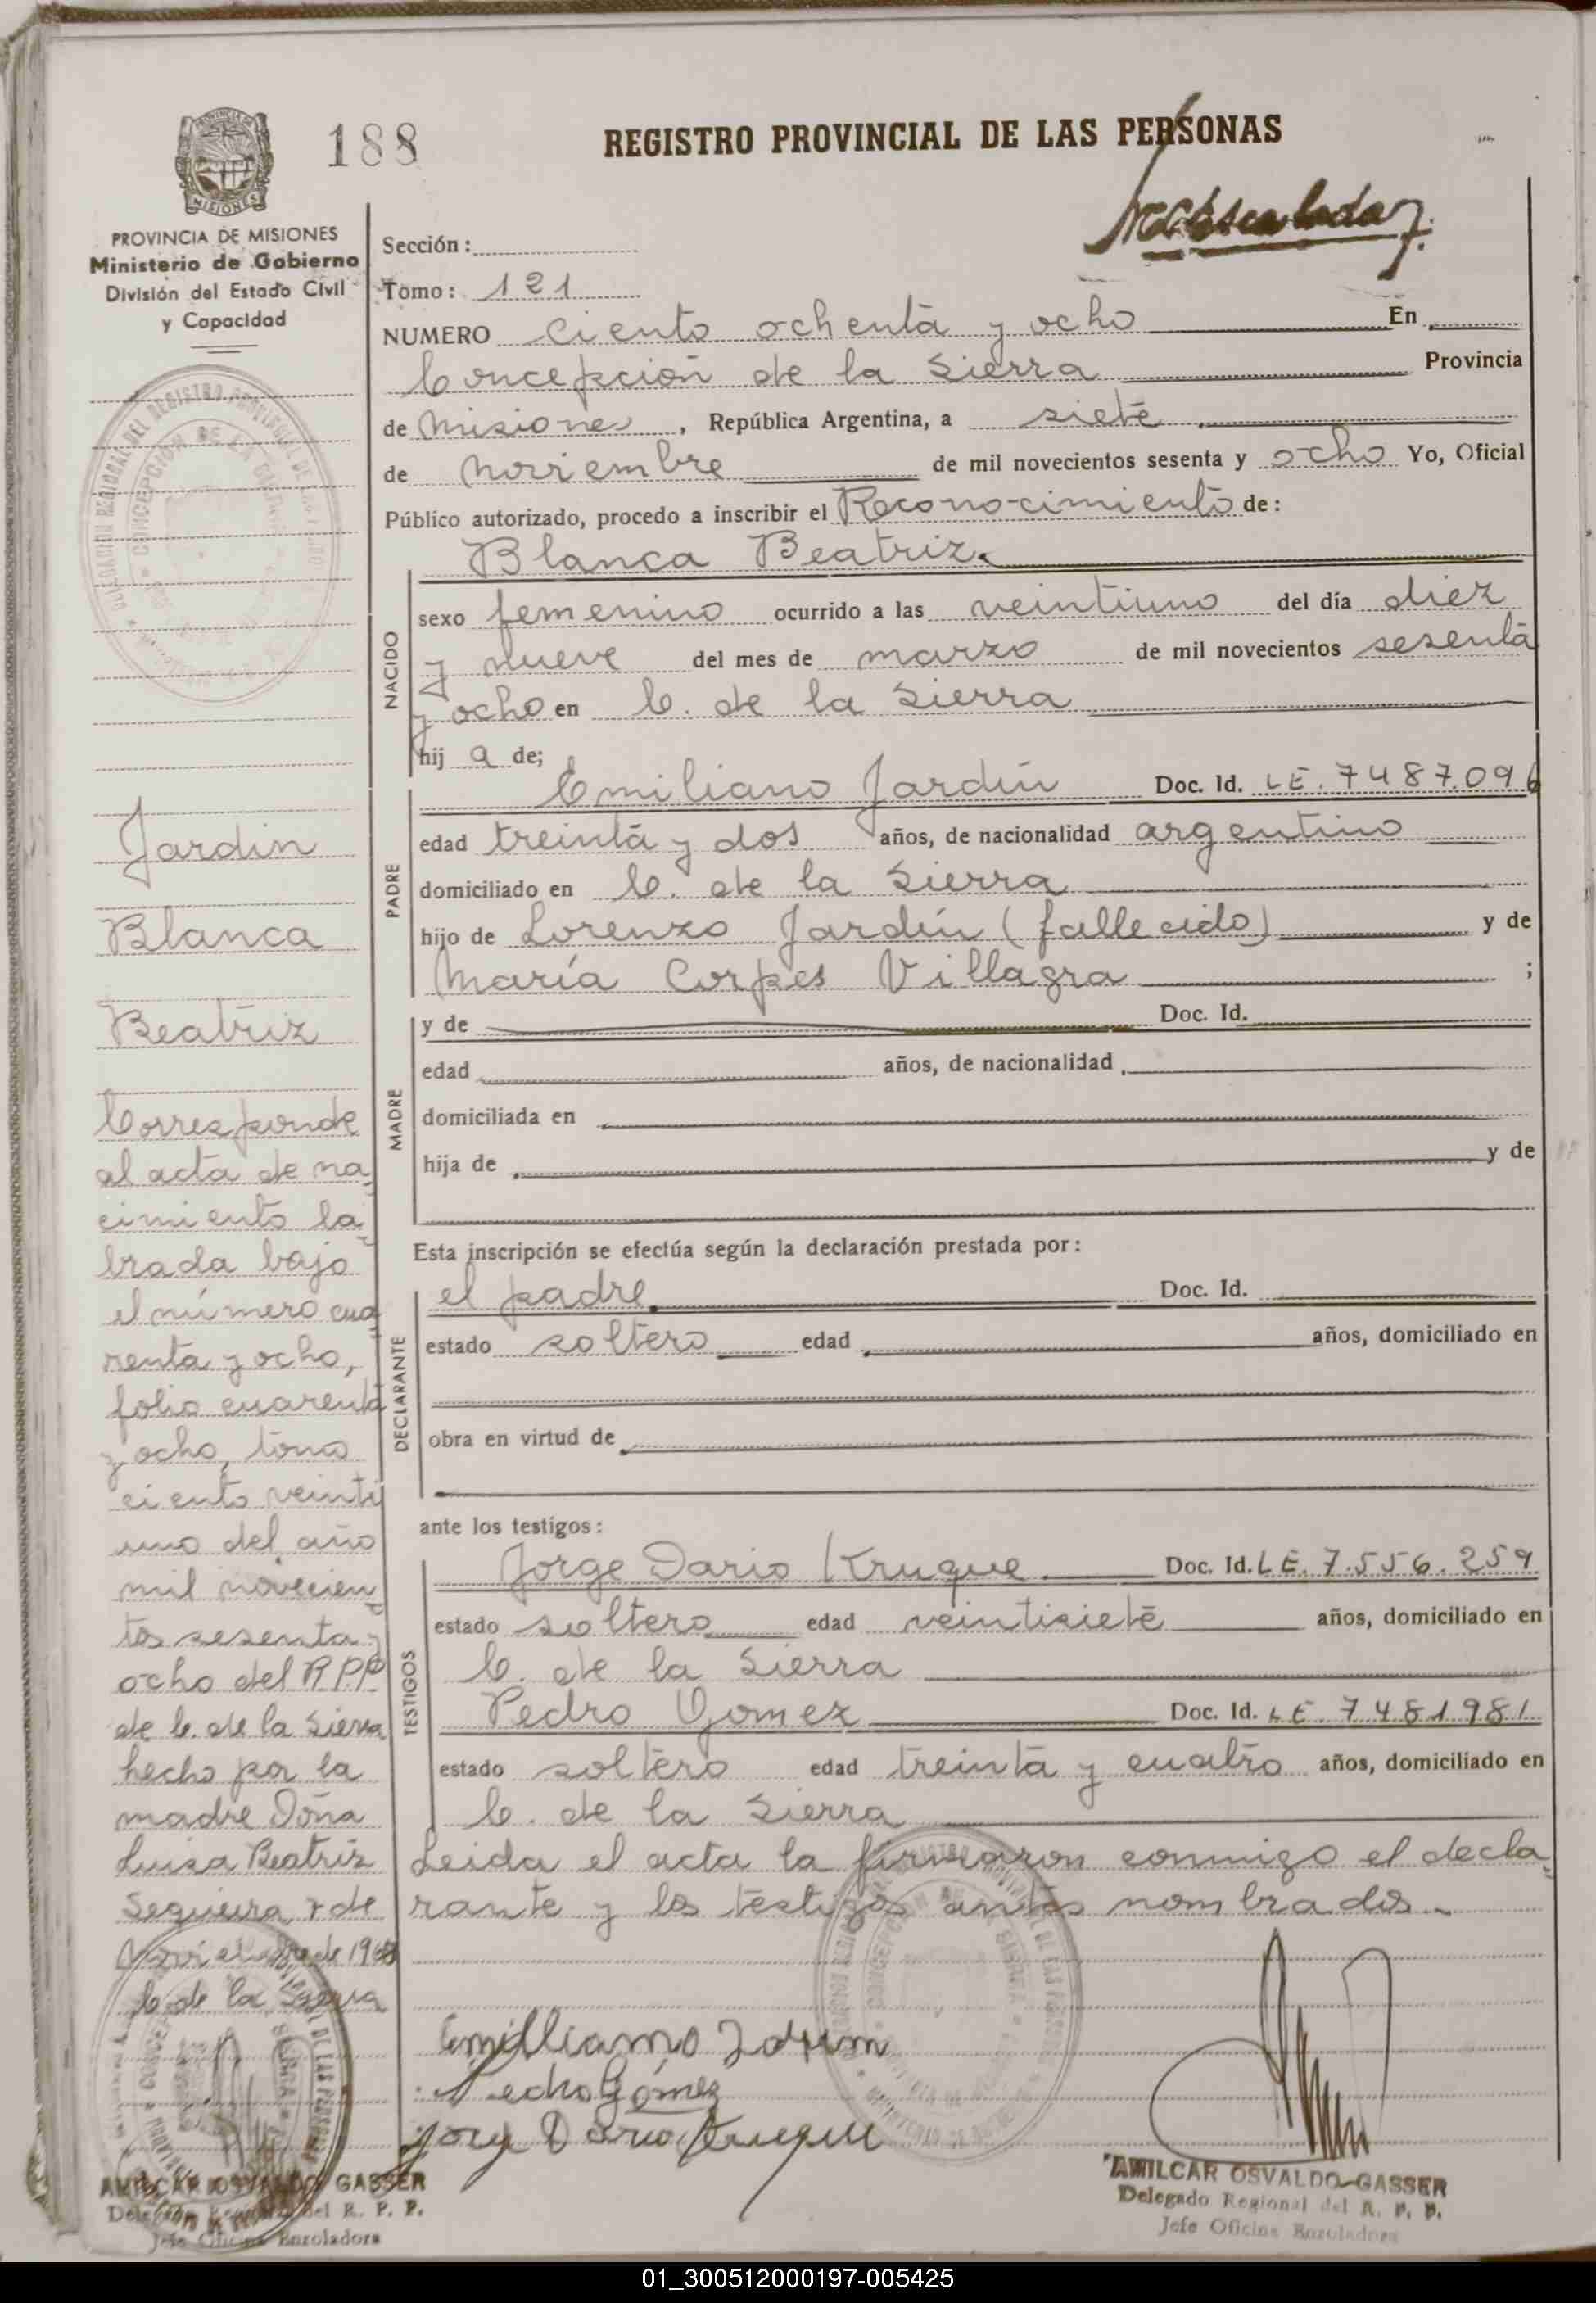 188
REGISTRO PROVINCIAL DE LAS PERSONAS
MISIONES
PROVINCIA DE MISIONES
Ministerio de Gobierno
División del Estado Civil
y Capacidad
Sección:
Tomo: 121
NUMERO ciento ochenta y ocho En
Concepción de la Sierra Provincia
de Misiones, República Argentina, a siete
de Noviembre de mil novecientos sesenta y ocho Yo, Oficial
Público autorizado, procedo a inscribir el Reconocimiento de:
Blanca Beatriz
NACIDO
sexo femenino ocurrido a las veintiuno del día diez
y nueve del mes de marzo de mil novecientos sesenta
y ocho en C. de la Sierra
hij a de;
PADRE
Emiliano Jardín Doc. Id. LE. 7487.096
edad treinta y dos años, de nacionalidad argentino
domiciliado en C. de la Sierra
hijo de Lorenzo Jardín (fallecido) y de
María Corpes Villagra ;
MADRE
y de Doc. Id.
edad años, de nacionalidad
domiciliada en
hija de y de
Esta inscripción se efectúa según la declaración prestada por:
DECLARANTE
el padre. Doc. Id.
estado soltero edad años, domiciliado en
obra en virtud de
ante los testigos:
TESTIGOS
Jorge Dario Kruque Doc. Id. LE. 7.556.259
estado soltero edad veintisiete años, domiciliado en
C. de la Sierra
Pedro Gomez Doc. Id. LE. 7481981
estado soltero edad treinta y cuatro años, domiciliado en
C. de la Sierra
Leida el acta la firmaron conmigo el decla-
rante y los testigos antes nombrados.-
Jardin
Blanca
Beatriz
Corresponde
al acta de na-
cimiento la-
brada bajo
el número cua-
renta y ocho,
folio cuarenta
y ocho, tomo
ciento veinti
uno del año
mil novecien-
tos sesenta y
ocho del R.P.P.
de C. de la Sierra
hecho por la
madre Doña
Luisa Beatriz
Sequeira, 7 de
Noviembre de 1968
C. de la Sierra
Emilliamo Jardim
Pedro Gómez
Jorge Dario Kruque
AMILCAR OSVALDO GASSER
Delegado Regional del R. P. P.
Jefe Oficina Enroladora
AMILCAR OSVALDO GASSER
Delegado Regional del R. P. P.
Jefe Oficina Enroladora
01_300512000197-005425